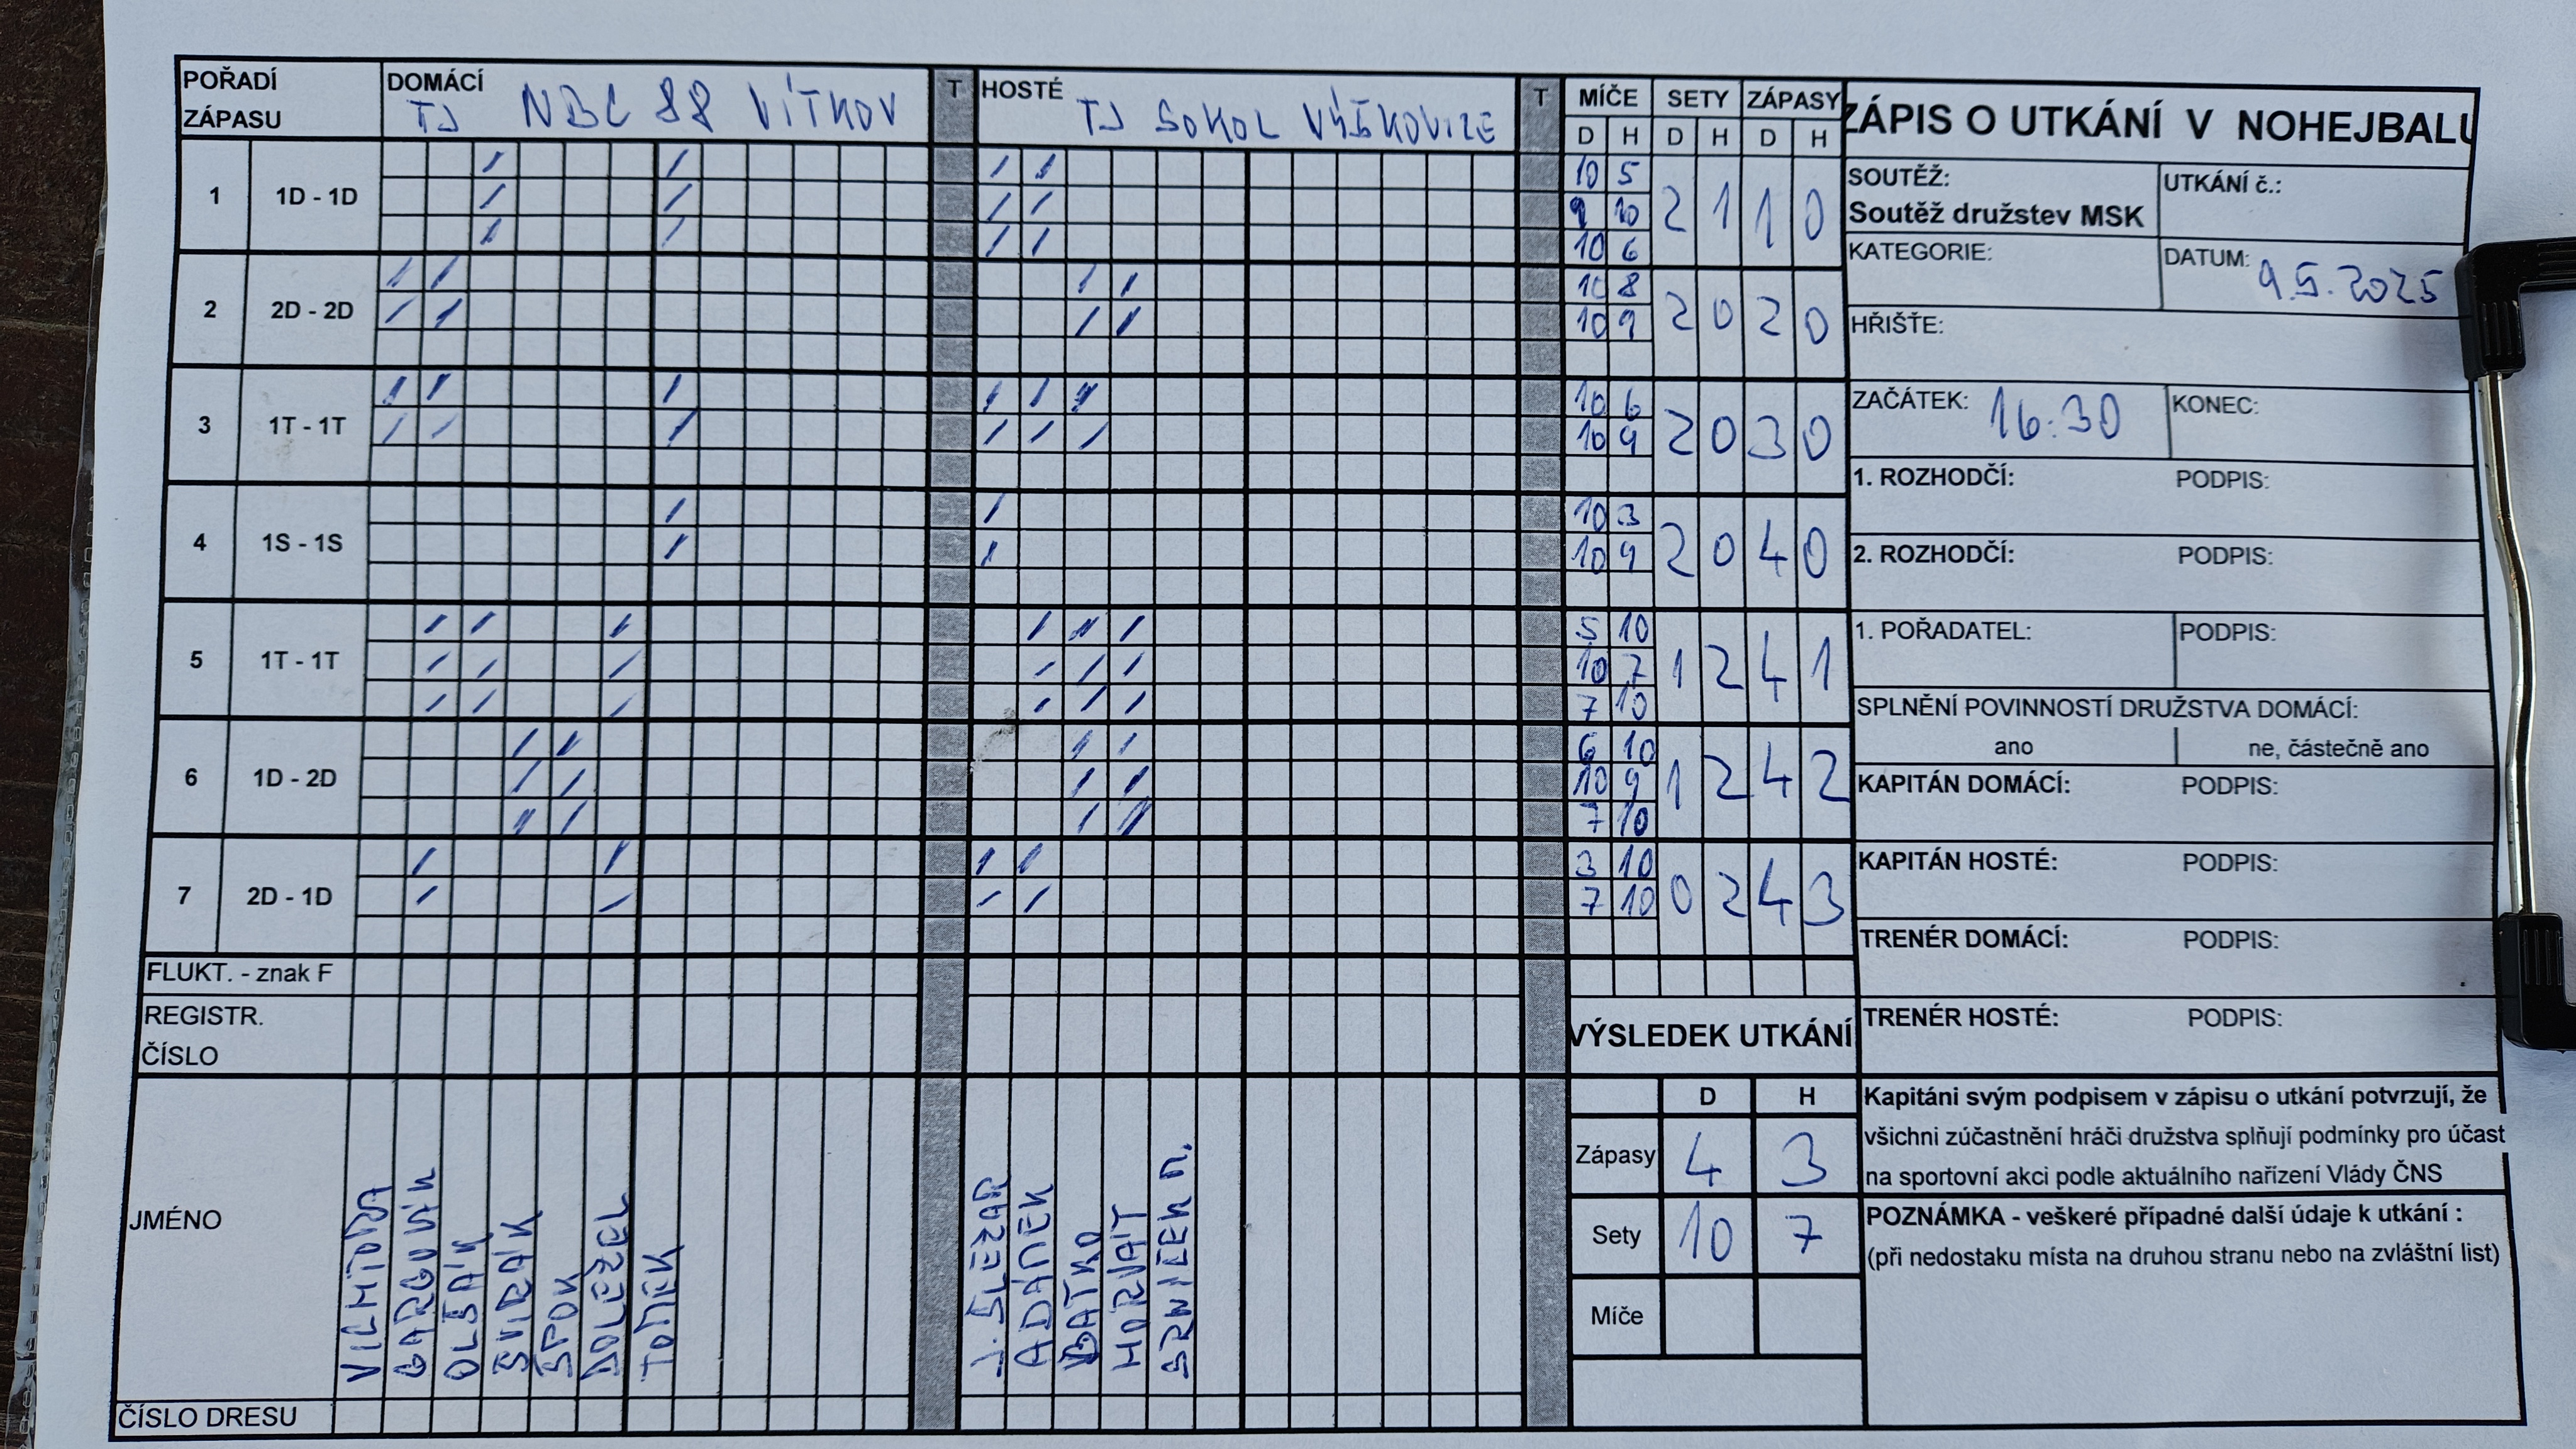 POŘADÍ ZÁPASU DOMÁCÍ TJ NBC 88 VÍTKOV T HOSTÉ TJ SOKOL VÝŠKOVICE T MÍČE SETY ZÁPASY
D H D H D H
1 1D - 1D 10 5 2 1 1 0
9 10
10 6
2 2D - 2D 10 8 2 0 2 0
10 9
3 1T - 1T 10 6 2 0 3 0
10 9
4 1S - 1S 10 3 2 0 4 0
10 9
5 1T - 1T 5 10 1 2 4 1
10 7
7 10
6 1D - 2D 6 10 1 2 4 2
10 9
7 10
7 2D - 1D 3 10 0 2 4 3
7 10
FLUKT. - znak F
REGISTR.
ČÍSLO
JMÉNO
ADAMEK
BATKO
HORVAT
ČÍSLO DRESU
VÝSLEDEK UTKÁNÍ
D H
Zápasy 4 3
Sety 10 7
Míče
ZÁPIS O UTKÁNÍ V NOHEJBALU
SOUTĚŽ: UTKÁNÍ č.:
Soutěž družstev MSK
KATEGORIE: DATUM: 9.5.2025
HŘIŠTE:
ZAČÁTEK: 16:30 KONEC:
1. ROZHODČÍ: PODPIS:
2. ROZHODČÍ: PODPIS:
1. POŘADATEL: PODPIS:
SPLNĚNÍ POVINNOSTÍ DRUŽSTVA DOMÁCÍ:
ano ne, částečně ano
KAPITÁN DOMÁCÍ: PODPIS:
KAPITÁN HOSTÉ: PODPIS:
TRENÉR DOMÁCÍ: PODPIS:
TRENÉR HOSTÉ: PODPIS:
Kapitáni svým podpisem v zápisu o utkání potvrzují, že
všichni zúčastnění hráči družstva splňují podmínky pro účast
na sportovní akci podle aktuálního nařízení Vlády ČNS
POZNÁMKA - veškeré případné další údaje k utkání :
(při nedostaku místa na druhou stranu nebo na zvláštní list)